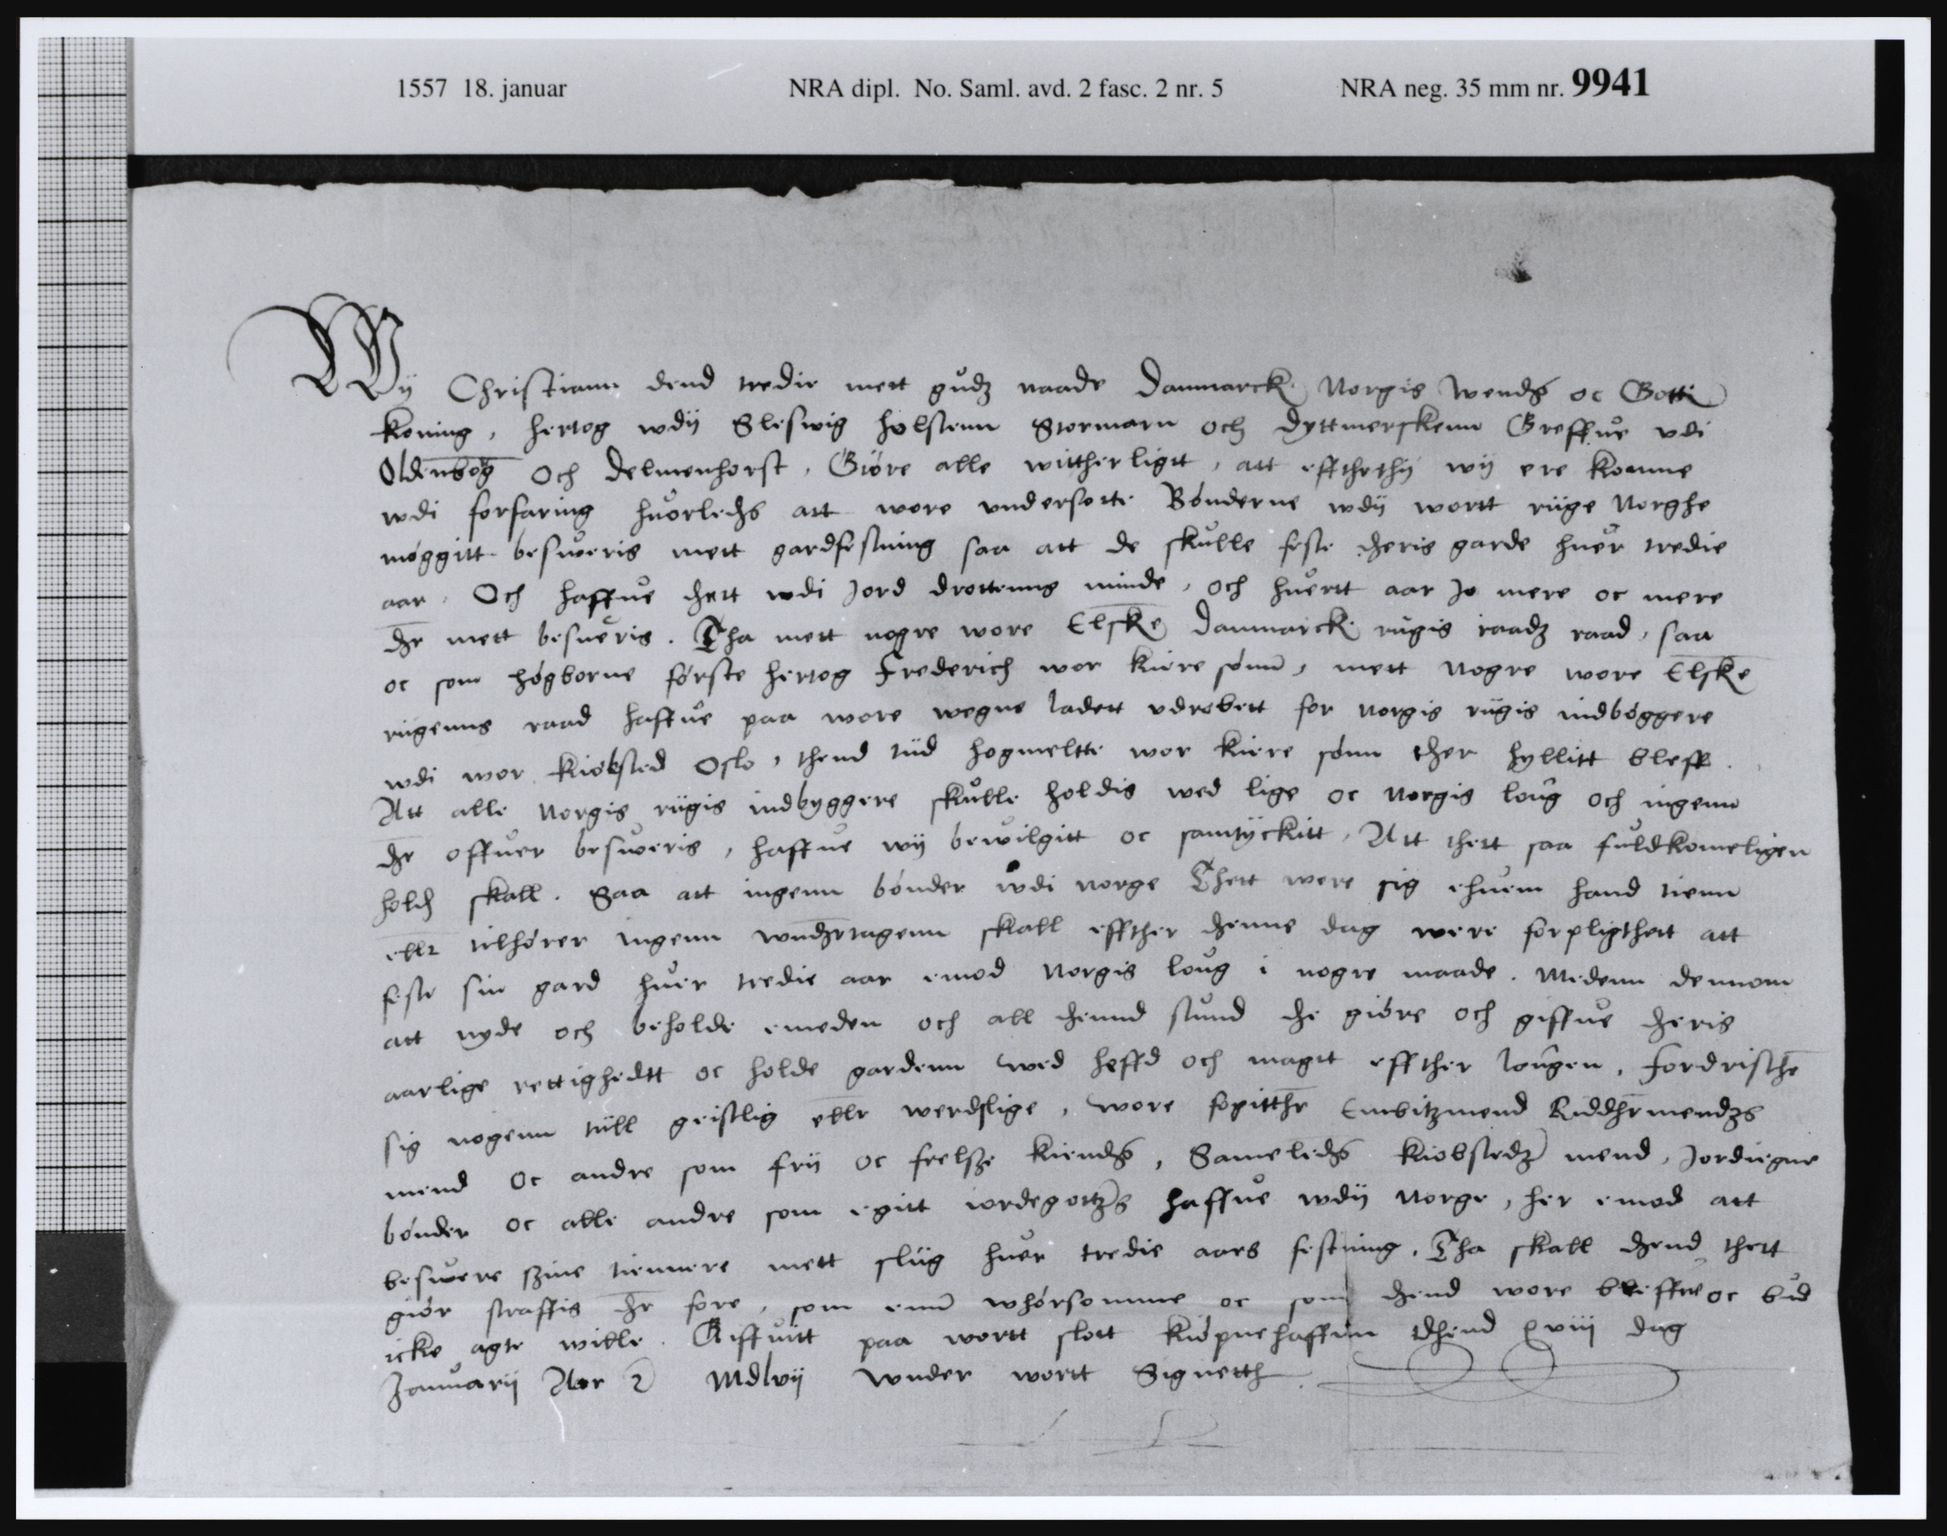 1557 18. januar NRA dipl. No. Saml. avd. 2 fasc. 2 nr. 5 NRA neg. 35 mm nr. 9941
Wij Christiann dend tredie mett gudz naade Danmarck Norgis Wends oc Gotti
koning, hertog wdij Sleswig holstenn Stormarn och Dyttmerskenn Greffue vdi
Oldenbog och Delmenhorst, Giøre alle wittherligtt, att effthrthij wij ere komne
wdi forfaring huorledis att wore vndersotte Bønderne wdij wortt riige Norghe
møggitt besweris mett gardfestning saa att de skulle feste theris garde huer tredie
aar. Och haffue thett wdi Jord drottenns minde, och huertt aar Jo mere oc mere
ther mett besueris. Tha mett nogre wore Elske Danmarck rigis raadz raad, saa
oc som høgborne første hertog Frederich wor kiere sønn, mett nogre wore Elske
rigenns raad haffue paa wore wegne ladett vdrobett for Norgis rigis indbøggere
wdi wor kiøbsted Oslo, thend tiid hogmeltte wor kiere sønn ther hyllitt bleff.
Att alle Norgis riigis indbyggere skulle holdis wed lige oc Norgis loug och ingenn
ther offuer besweris, haffue wij bewilgitt oc samtyckitt, Att thett saa fuldkomeligen
holdes skall. Saa att ingenn bønder wdi norge Thett were sig ehuem hand tienn
eller tilhører ingenn wndertagenn skall effther thenne dag were forpligthett att
feste sin gard huer tredie aar emod Norgis loug i nogre maade. Medenn dennom
att nyde och beholde emeden och all thennd stund the giøre och giffue theris
aarlige rettighedtt oc holde gardenn wed heffd och magtt effther lougen, Fordristhe
sig nogenn tiill geistlig eller werdslige, wore fogitther Embitzmend Riddermendzs
mend oc andre som frii oc frelsze kiendis, Sameledis kiobstedz mend, Jordiegne
bønder oc alle andre som egitt iordegottzs haffue wdij Norge, her emod att
beswere szine tiennere mett sliig huer tredie aars festning. Tha skall thend thett
giør straffis ther fore, som enn whørsomme oc som thend wore breffue oc bud
icke agte wille. Giffuitt paa wortt slott kiøpnehaffun thend xviii dag
Januarij Aar &c Mdlvij Wnder wortt Signetth